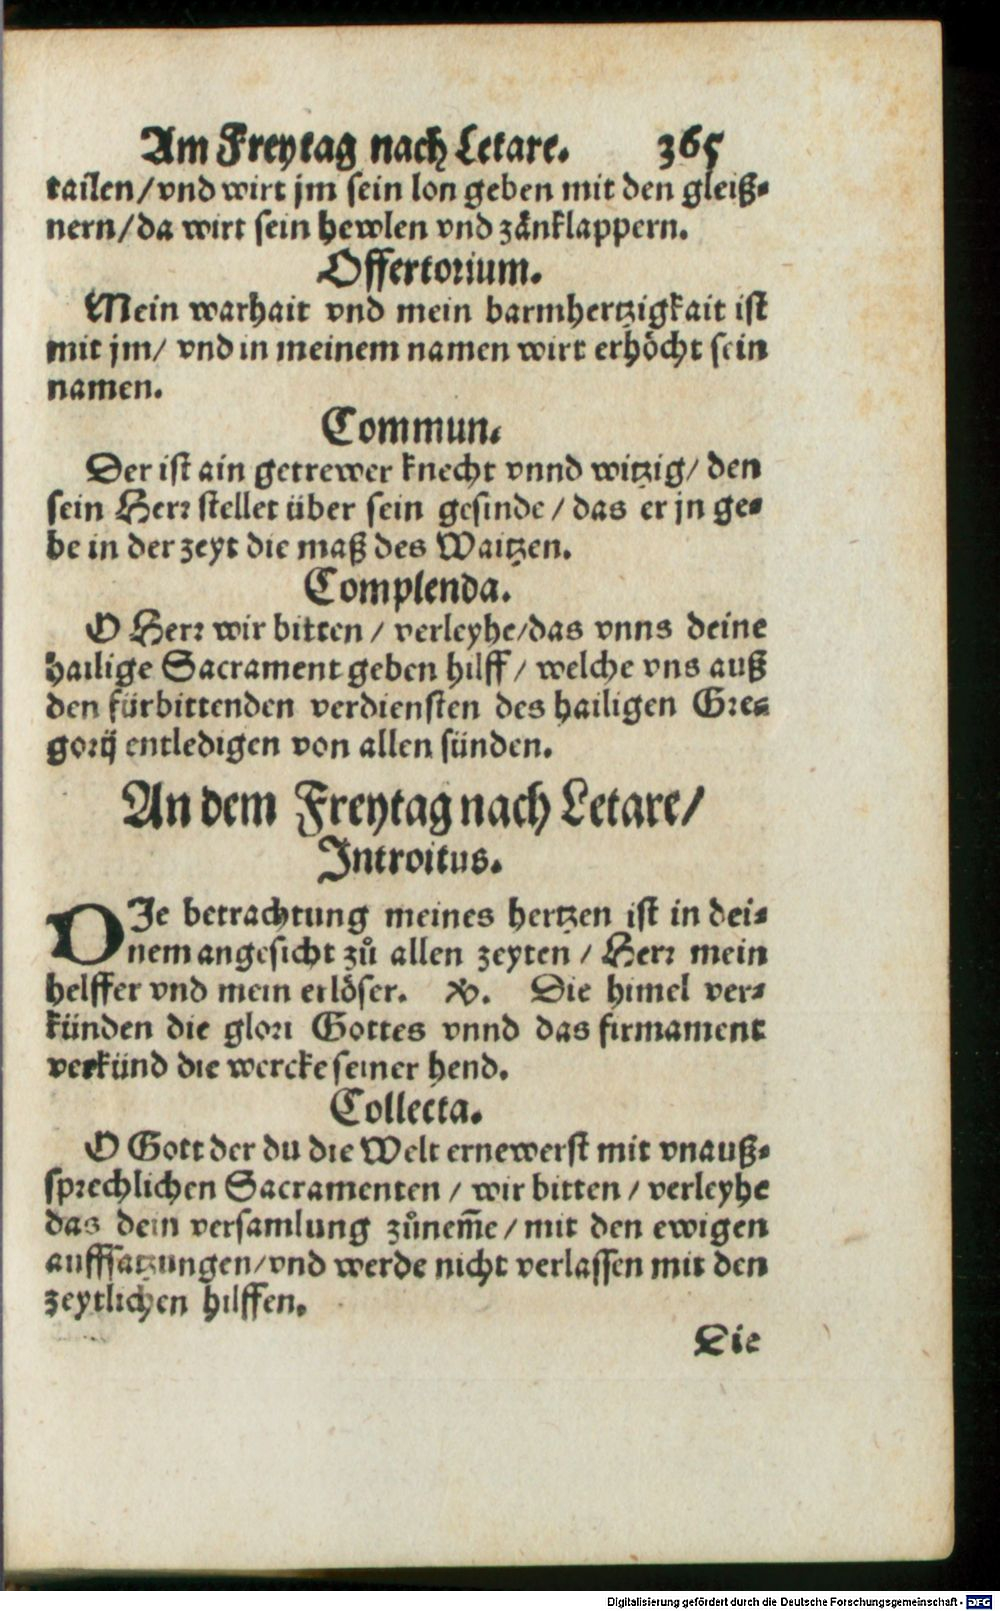 Am Freytag nach Letare. 365
tailen/vnd wirt jm sein lon geben mit den gleiß⸗
nern/da wirt sein hewlen vnd zänklappern.
Offertorium.
Mein warhait vnd mein barmhertzigkait ist
mit jm/ vnd in meinem namen wirt erhöcht sein
namen.
Commun.
Der ist ain getrewer knecht vnnd witzig/ den
sein Herr stellet über sein gesinde/das er jn ge⸗
be in der zeyt die maß des Waitzen.
Complenda.
O Herr wir bitten/verleyhe/das vnns deine
hailige Sacrament geben hilff/welche vns auß
den fürbittenden verdiensten des hailigen Gre⸗
gorij entledigen von allen sünden.
An dem Freytag nach Letare/
Introitus.
DIe betrachtung meines hertzen ist in dei⸗
nem angesicht zů allen zeyten/Herr mein
helffer vnd mein erlöser. ℣. Die himel ver⸗
künden die glori Gottes vnnd das firmament
verkünd die wercke seiner hend.
Collecta.
O Gott der du die Welt ernewerst mit vnauß⸗
sprechlichen Sacramenten/wir bitten/verleyhe
das dein versamlung zůnem̃e/mit den ewigen
auffsatzungen/vnd werde nicht verlassen mit den
zeytlichen hilffen.
Die
Digitalisierung gefördert durch die Deutsche Forschungsgemeinschaft - DFG